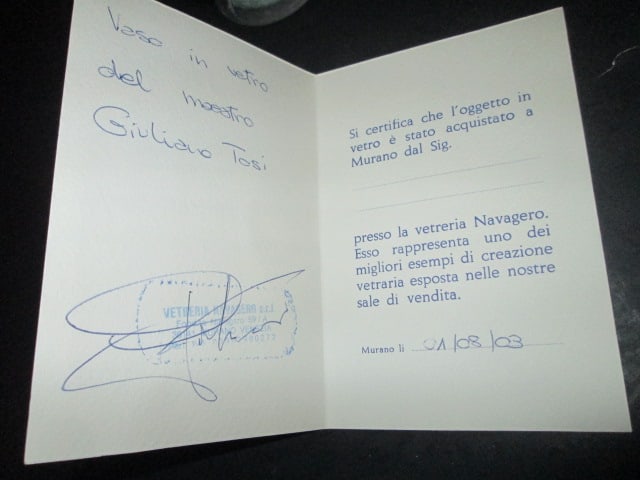 Vaso in vetro
del maestro
Giuliano Tosi
VETRERIA NAVAGERO s.r.l.
Si certifica che l'oggetto in
vetro è stato acquistato a
Murano dal Sig.
presso la vetreria Navagero.
Esso rappresenta uno dei
migliori esempi di creazione
vetraria esposta nelle nostre
sale di vendita.
Murano li 01/08/03